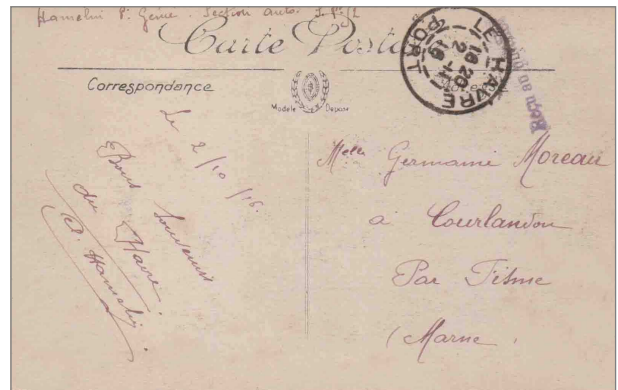 Hamelin P. Génie. Section auto.
Carte Postale
LE HAVRE
PORT
16 20
2 -11
16
Reçu au
Correspondance
Modèle Déposé
Le 2/10/16.
Bons Souvenirs
du Havre.
P. Hamelin
Melle Germaine Moreau
à Courlandon
Par Fisme
(Marne